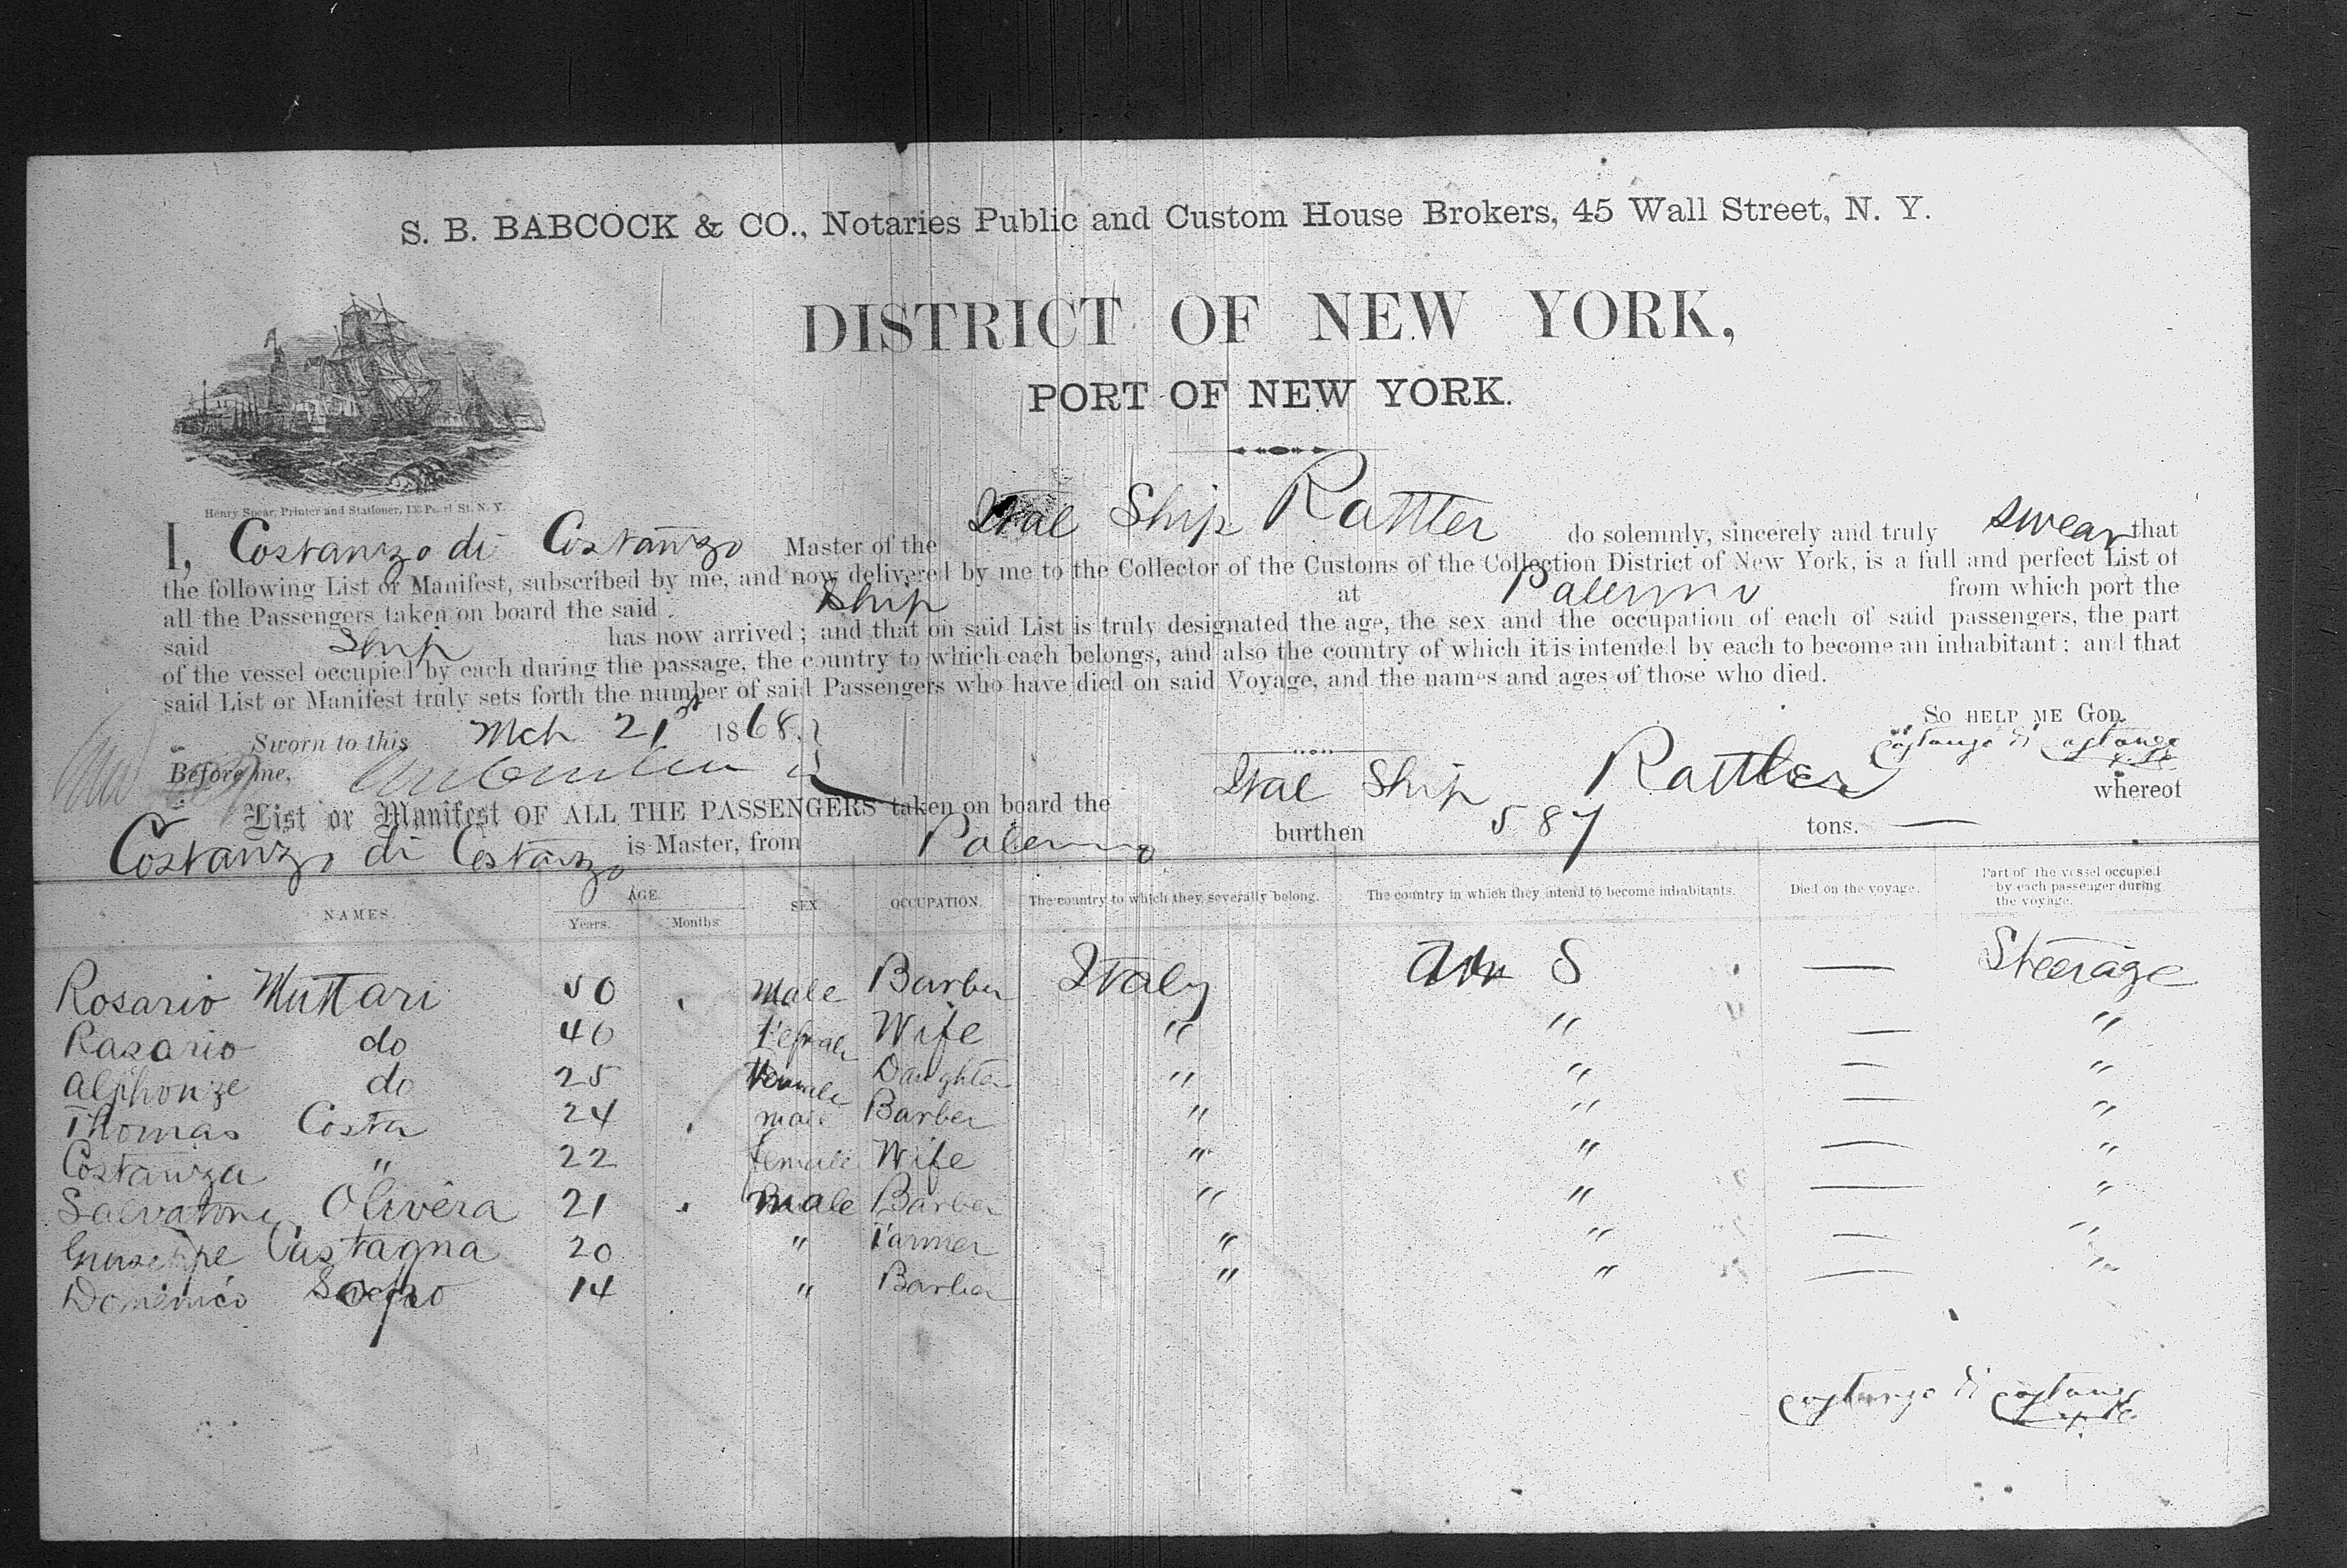 S. B. BABCOCK & CO., Notaries Public and Custom House Brokers, 45 Wall Street, N. Y.
DISTRICT OF NEW YORK,
PORT OF NEW YORK.
Henry Spear, Printer and Stationer, Pearl St. N. Y.
I, Costanzo di Costanzo Master of the Ital Ship Rattler do solemnly, sincerely and truly swear that
the following List or Manifest, subscribed by me, and now delivered by me to the Collector of the Customs of the Collection District of New York, is a full and perfect List of
all the Passengers taken on board the said Ship at Palermo from which port the
said Ship has now arrived; and that on said List is truly designated the age, the sex and the occupation of each of said passengers, the part
of the vessel occupied by each during the passage, the country to which each belongs, and also the country of which it is intended by each to become an inhabitant; and that
said List or Manifest truly sets forth the number of said Passengers who have died on said Voyage, and the names and ages of those who died.
SO HELP ME GOD.
Sworn to this Mch 21st 1868.
Costanzo di Costanzo
Before me,
List or Manifest OF ALL THE PASSENGERS taken on board the Ital Ship Rattler whereof
Costanzo di Costanzo is Master, from Palermo burthen 587 tons.
NAMES. AGE. Years. Months SEX. OCCUPATION. The country to which they severally belong. The country in which they intend to become inhabitants. Died on the voyage. Part of the vessel occupied by each passenger during the voyage.
Rosario Muttari 50 Male Barber Italy S — Steerage
Rasario do 40 Female Wife " " — "
Alphonze do 25 Female Daughter " " — "
Thomas Costa 24 male Barber " " — "
Costanza " 22 female Wife " " — "
Salvatore Olivera 21 Male Barber " " — "
Guiseppe Castagna 20 " Farmer " " — "
Domenico 14 " Barber " " — "
Costanzo di Costanzo